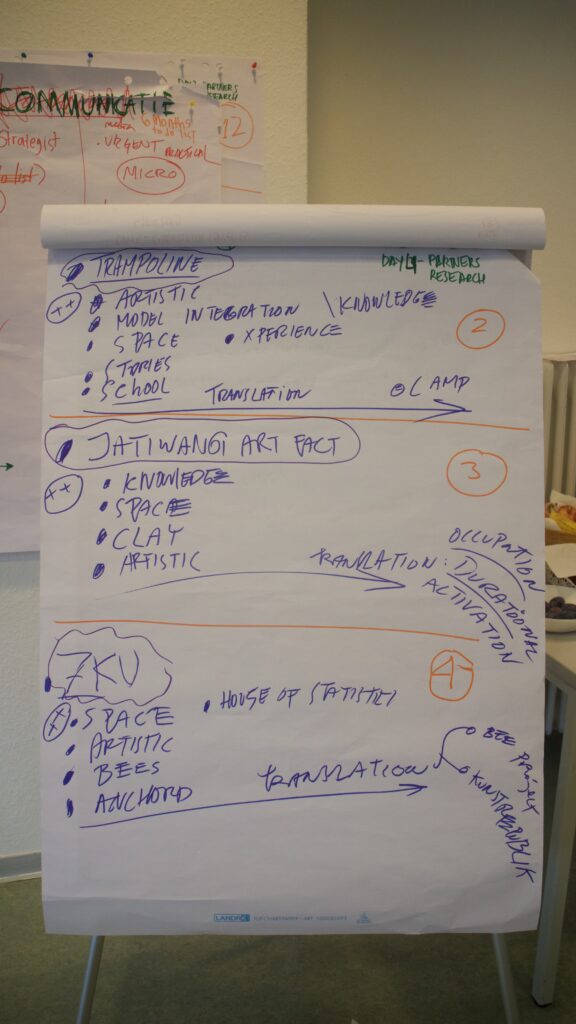 COMMUNICATIE
PARTNERS
RESEARCH
Strategist
6 MONTHS
to do list
• URGENT PRACTICAL
MICRO
12
DAY 4 - PARTNERS
RESEARCH
• TRAMPOLINE
++ • ARTISTIC
• MODEL INTEGRATION \ KNOWLEDGE
• SPACE • XPERIENCE
2
• STORIES
• SCHOOL TRANSLATION O CAMP
• JATIWANGI ART FACT
3
++ • KNOWLEDGE
• SPACE
• CLAY
• ARTISTIC
TRANSLATION: OCCUPATION
DURATIONAL
ACTIVATION
• ZKU
4
++ • SPACE • HOUSE OF STATISTICS
• ARTISTIC
• BEES TRANSLATION
• ANCHORD
BEE PROJECT
KUNSTREPUBLIK
LANDRÉ